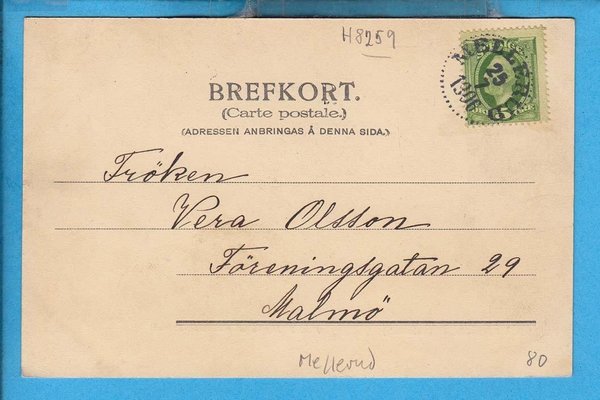 H8259
MELLERUD
25
1
BREFKORT.
(Carte postale.)
(ADRESSEN ANBRINGAS Å DENNA SIDA.)
Fröken
Vera Olsson
Föreningsgatan 29
Malmö
Mellerud
80